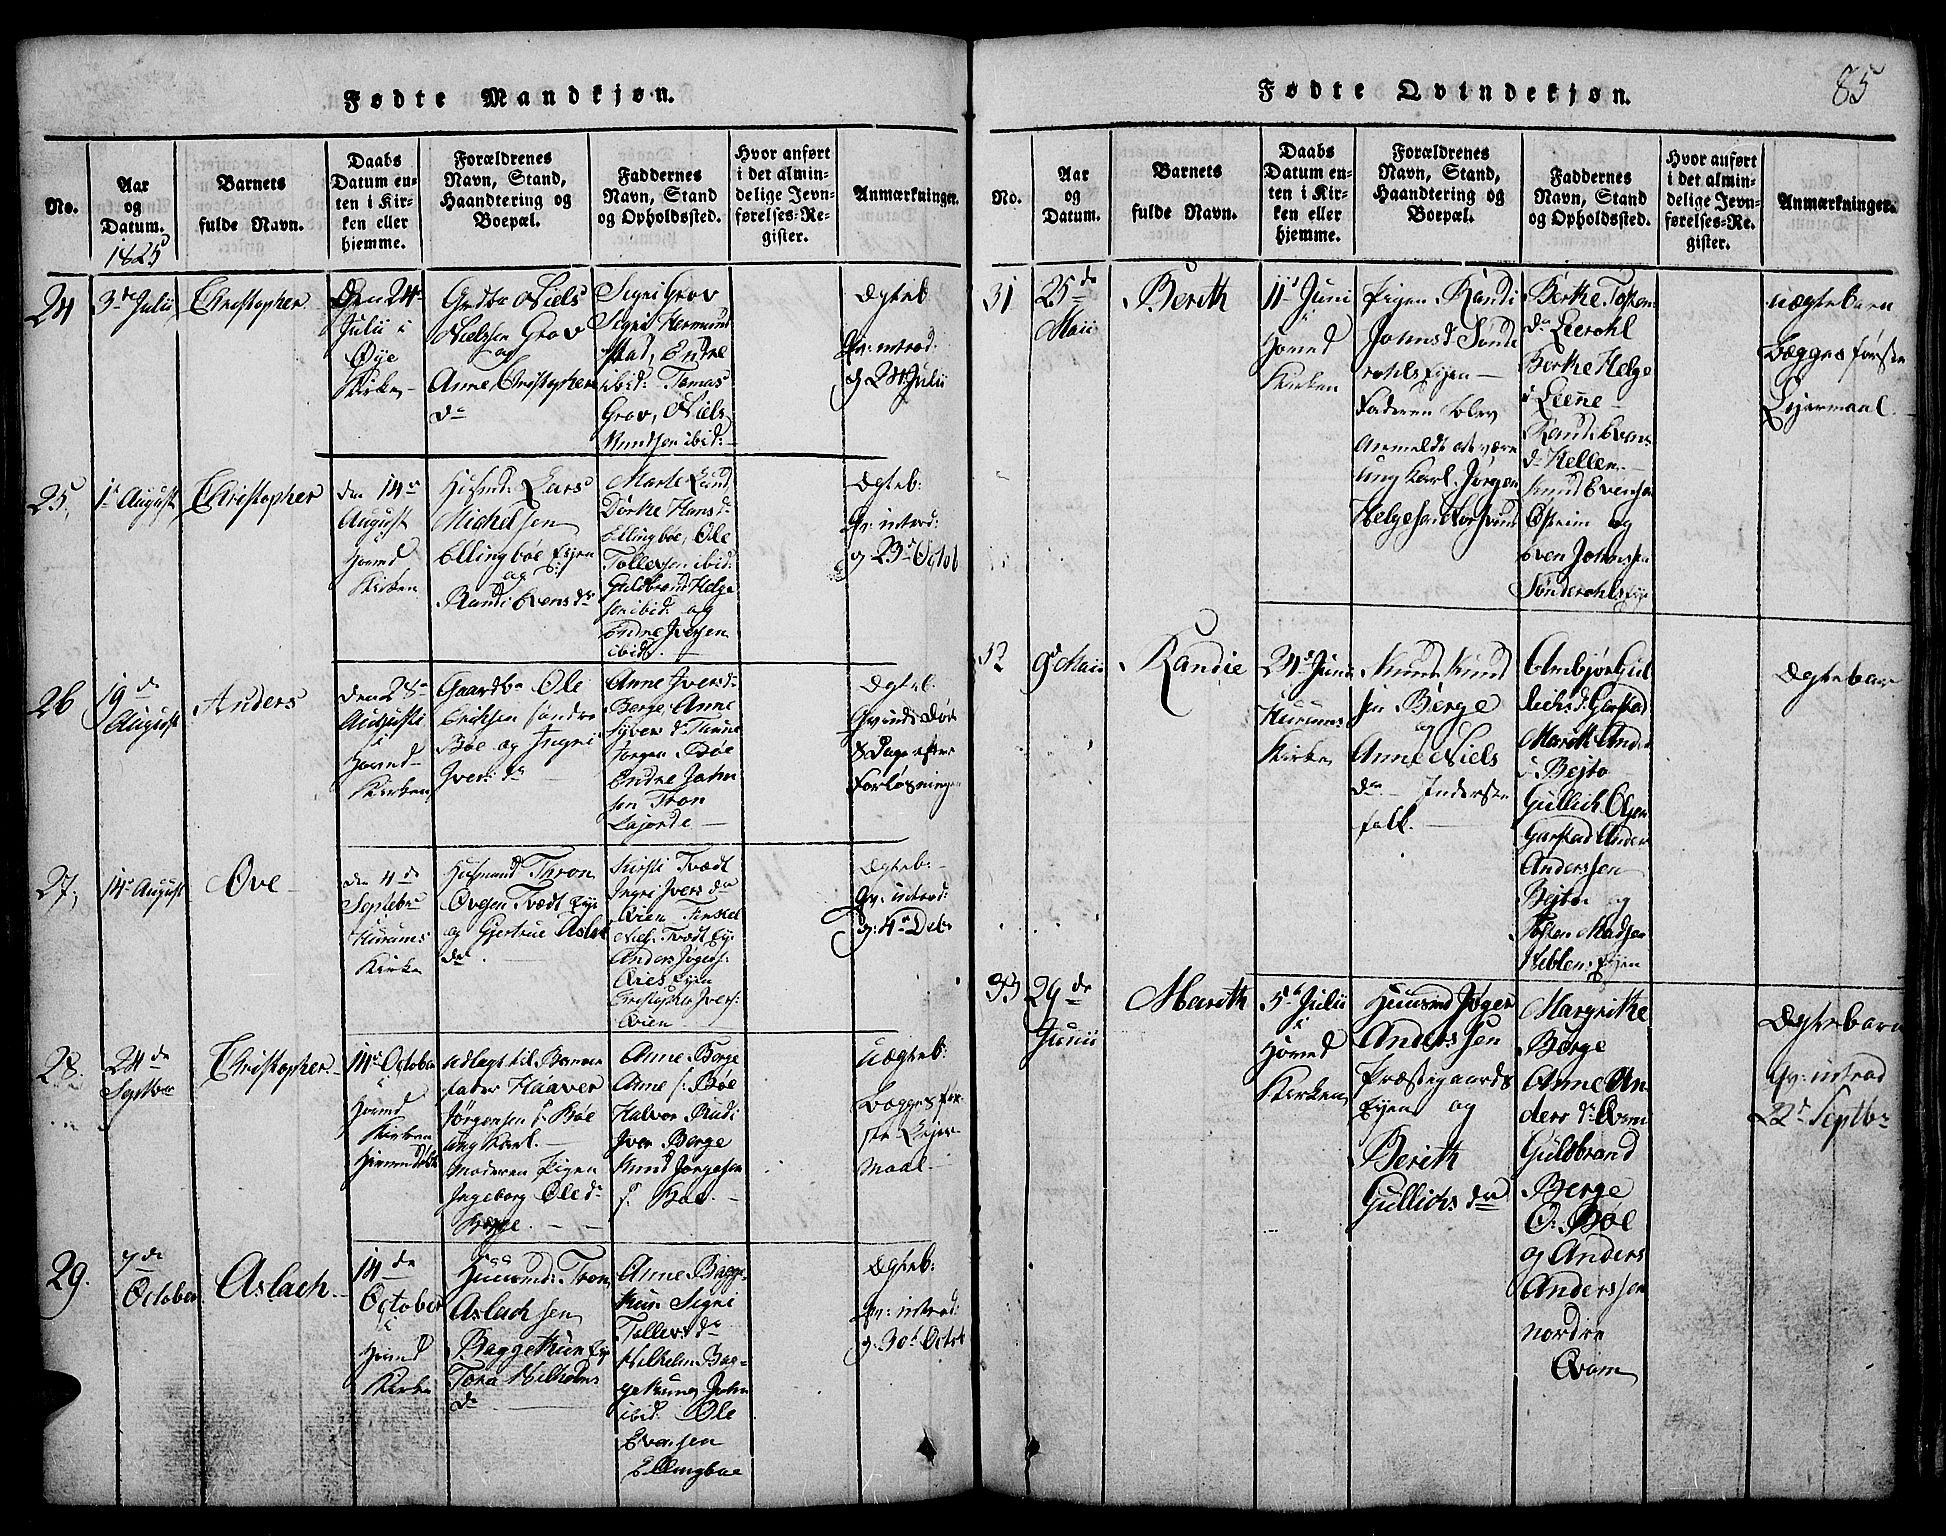 Fødte Mandkjøn.
No.
Aar
og
Datum.
1825
Barnets
fulde Navn.
Daabs
Datum en-
ten i Kir-
ken eller
hjemme.
Forældrenes
Navn, Stand,
Haandtering og
Boepæl.
Faddernes
Navn, Stand
og Opholdssted.
Hvor anført
i det almin-
delige Jevn-
førelses-Re-
gister.
Anmærkninger.
24
3de Julii
Christopher
Den 24de
Julii i
Øye
Kirke
Grdbr Niels
Nielssen Grov
og
Anne Christophers
dr
Signi Grov
Sigri Hermund
stad, Endre
ibid: Tomas
Grov, Niels
Knudsen ibid:
Ægteb
Qv: introd:
d 24 Julii
25,
1te August
Christopher
den 14de
August
i
Hovmd
Kirken
Husmd: Lars
Michelsen
Ellingbøe Ejen
og
Randi Evensdr
Marte Lund
Dorke Hansd:
Ellingbøe, Ole
Tollefsen ibid:
Guldbrand Helge
sen ibid: og
Endre Iversen
ibid:
Ægteb:
Qv: introd:
d: 23de Octob
26
19de
August
Anders
den 28de
Augusti
i
Hovmd
Kirken
Gaardbr Ole
Eriksen søndre
Bøe og Ingri
Iversdr
Anne Iversd:
Berge Anne
Syversd: Tunne
Jørgen Bøe
Endre John
sen Tron
Lajorde
Ægteb:
Qvinde Døde
8 Dage efter
Forløsningen
27,
14de August
Ove
den 4de
Septebr
i
Hurums
Kirke
Husmand Thron
Ovesen Tvedt Eje
og Gjertrue Aslak
dr
Kirsti Tvedt
Ingri Iversdr
Qvien
Niels Tvedt Ej:
Anders
Qvien Ejen
Christopher Ivers:
Qvien
Ægteb:
Qv: introd:
d: 4de Debr
28.
24de
Septbr
Christopher
14de October
i
Hovmd
Kirken
Hiemmedøbt
udlagt til Barne
fader Haaver
Jørgensen s: Bøe
ung Karl.
Moderen Pigen
Ingeborg Olesd:
Hegge.
Anne Berge
Anne s: Bøe
Halvor Rudi
Iver Berge
Knud Jørgesen
s. Bøe.
uægteb:
Begges før-
ste Lejer-
Maal.
29.
7de
October
Aslach
14de
October
i
Hovmd
Kirke
Huusmd: Tron
Aslachsen
Baggethun Eje
Tora Vilhelms
dr
Anne Bagge-
thun Signi
Tollersdr
Vilhelm Bag-
gethun John
ibid: Ole
Evensen
Ellingbøe
Ægteb:
Qv: introd:
d: 30te Octob
Fødte Qvindekjøn.
85
No.
Aar
og
Datum.
Barnets
fulde Navn.
Daabs
Datum en-
ten i Kir-
ken eller
hjemme.
Forældrenes
Navn, Stand,
Haandtering og
Boepæl.
Faddernes
Navn, Stand
og Opholdssted.
Hvor anført
i det almin-
delige Jevn-
førelses-Re-
gister.
Anmærkninger.
31
25de
Maii
Berith
11te Juni
i
Hovmd
Kirken
Pigen Randi
Johnsd: Sønde
rohls Ejen
Faderen blev
anmeldt at være
ung Karl Jørgen
Helgesen
Berthe Tosten
dr Leerohl
Berthe Helge
d: Leene
Randi Evens
dr Hellen
Knud Evensen
Østrim og
Even Johnssen
Sønderohls Eje
uægte Barn
begges første
Lejermaal
32
9de Maii
Randie
24de Junii
Hurums
Kirken
Knud Knud
sen Berge
og
Anne Niels
dr Inderste
folk.
Ambjør Gul
lichsd: Garstad
Marith Ander
d: Bejto
Gullich Olsen
Garstad Ander
Anderssen
Bejto og
Tosten Madsen
Ejen
Ægte barn
33
29de
Junii
Marith
5te Julii
i
Hovmd
Kirken
Huusmd Jøger
Anderssen
Præstegaards
Ejen og
Berith
Gullichsdr
Margrethe
Berge
Anne An
dersdr Qvam
Guldbrand
Berge
O. Bøe
og Anders
Anderssen
nordre
Qvam
Ægte barn
Qv: introd
22de Septbr